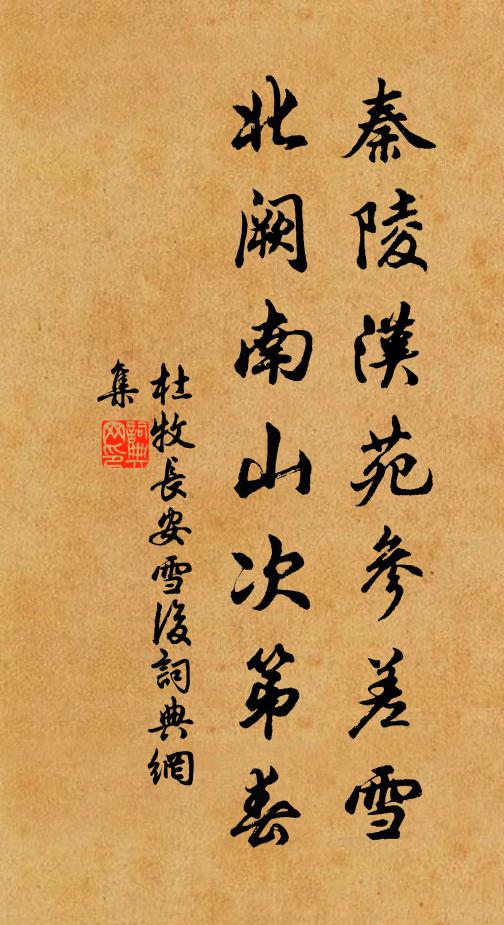 秦陵漢苑參差雪
北阙南山次第春
杜牧長安雪後詞典網
集